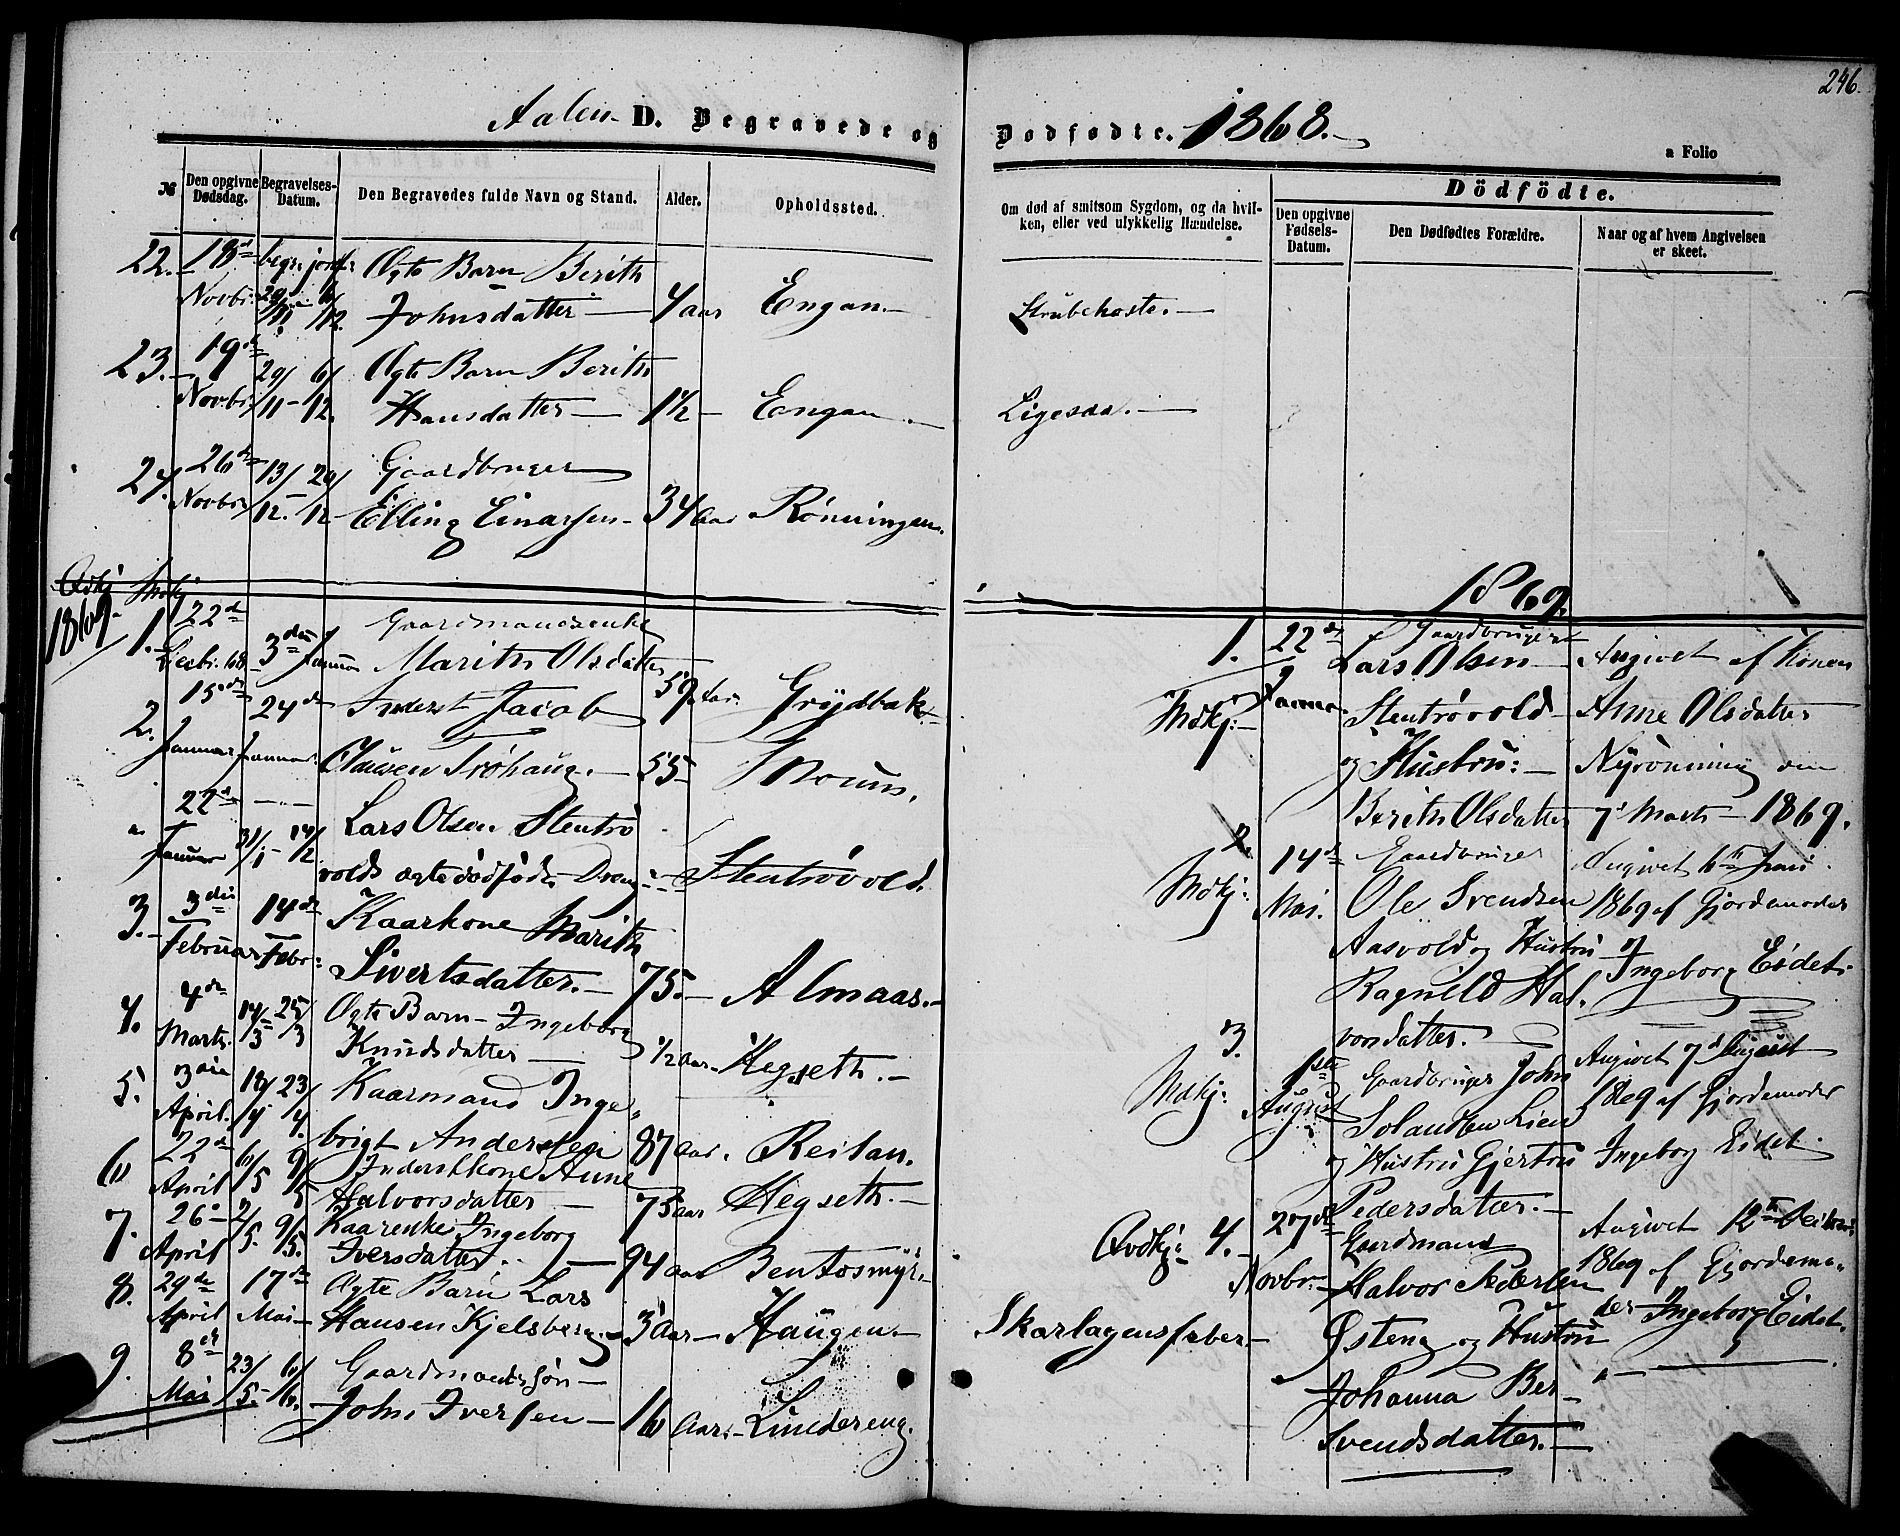 246.
Aalen D. Begravede og Dødfødte. 1868.
a Folio
№
Den opgivne Dødsdag.
Begravelses-Datum.
Den Begravedes fulde Navn og Stand.
Alder.
Opholdssted.
Om død af smitsom Sygdom, og da hvil-
ken, eller ved ulykkelig Hændelse.
Dödfödte.
Den opgivne Fødsels-Datum.
Den Dødfødtes Forældre.
Naar og af hvem Angivelsen
er skeet.
22. 18de begr: jordf: Ægte Barn Berith
Novbr: 29/11 6/12. Johnsdatter 4 aar Engan. Strubehoste.
23. 19de 29/ 6/ Ægte Barn Berith
Novbr: 11 - 12. Hansdatter 1½ Engan Ligesaa.
24. 26de 13/ 29/ Gaardbruger
Novbr. 12. 12 Elling Einarsen 34 aar Rönningen.
Qvdkj Mdkj
1869. 1869.
1. 22de Gaardmandsenke
Decbr. 68. 3die Januar Marith Olsdatter 59 Aar. Grydbak
2. 15de 24de Inderst Jacob
Januar Januar Clausen Tröhaug. 55
22de
Januar 31/1 - 14/2 Lars Olsen Stentrö
volds ægte dödfödte Dreng Stentrövold.
3. 3die 14de Kaarkone Marith
Februar Febr: Sivertsdatter. 75. Almaas.
4. 4de 14/3 25/3 Ægte Barn Ingeborg
Marts. Knudsdatter ½ Aar Hegseth.
5. 3die 18/ 23/ Kaarmand Inge-
April. 4 4. brigt Andersen 87 aar. Reitan.
6 22de 6/ 9/ Inderstkone Anne
April 5 5 Halvorsdatter 75 aar Hegseth.
7. 26 2/ 9/ Kaarenke Ingeborg
April 5. 5. Iversdatter. 94 aar Bentosmyr.
8. 29de 17de Ægte Barn Lars
April Mai Hansen Kjelsberg 3 Aar Haugen. Skarlagensfeber
9. 8de 23/ 6/ Gaardmandssön
Mai 5. 6. John Iversen 16 Aar. Lindereng.
1. 22de Gaardbruger
Mdkj: Januar Lars Olsen Angivet af Konen
Stentrövold Anne Olsdatter
og Hustru: Nyrönning den
Berith Olsdatter 7de Marts 1869.
2. 14de Gaardbruger Angivet 6te Juni
Mdkj: Mai. Ole Svendsen 1869 af Gjordemoder
Aasvold og Hustru Ingeborg Eidet.
Ragnild Hal-
vorsdatter.
3. 1ste Gaardbruger John Angivet 7de August
Mdkj: August Lien 1869 af Gjordemoder
og Hustru Gjertru Ingeborg Eidet.
Pedersdatter.
Qvdkj: 4. 27de Gaardmand Angivet 12te
Novbr. Halvor Pedersen 1869 af Gjordemo-
Østeng og Hustru der Ingeborg Eidet.
Johanna Ber-
Svendsdatter.